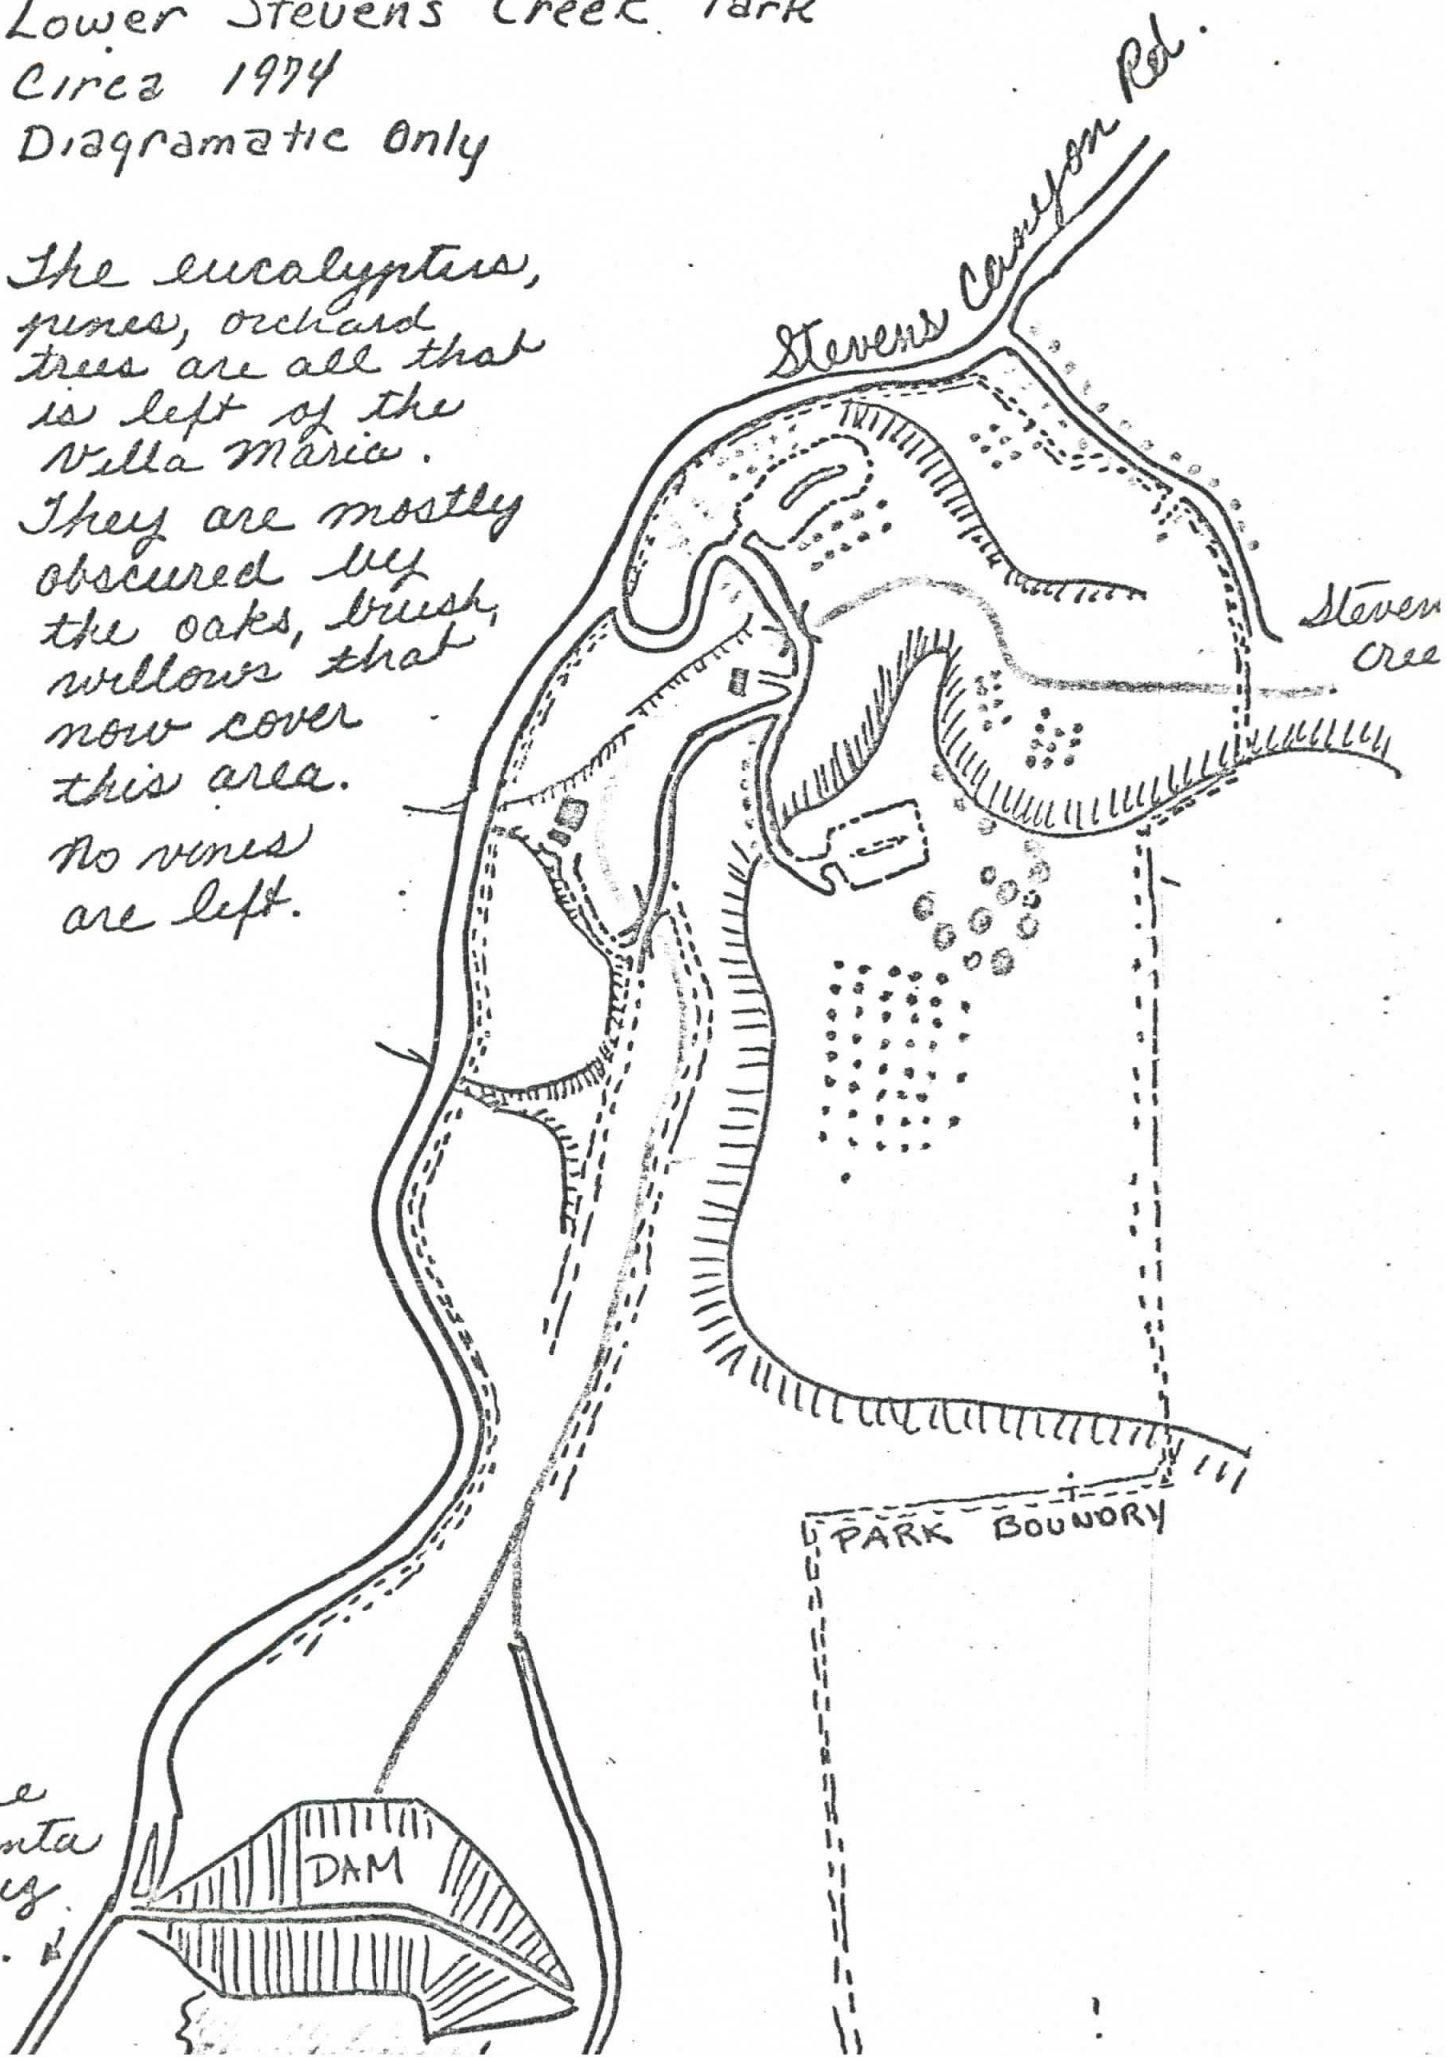 Lower Stevens Creek Park
Circa 1974
Diagramatic Only
The eucalyptus,
pines, orchard
trees are all that
is left of the
Villa Maria.
They are mostly
obscured by
the oaks, brush,
willows that
now cover
this area.
No vines
are left.
Stevens Canyon Rd.
Steven
Cree
PARK BOUNDRY
DAM